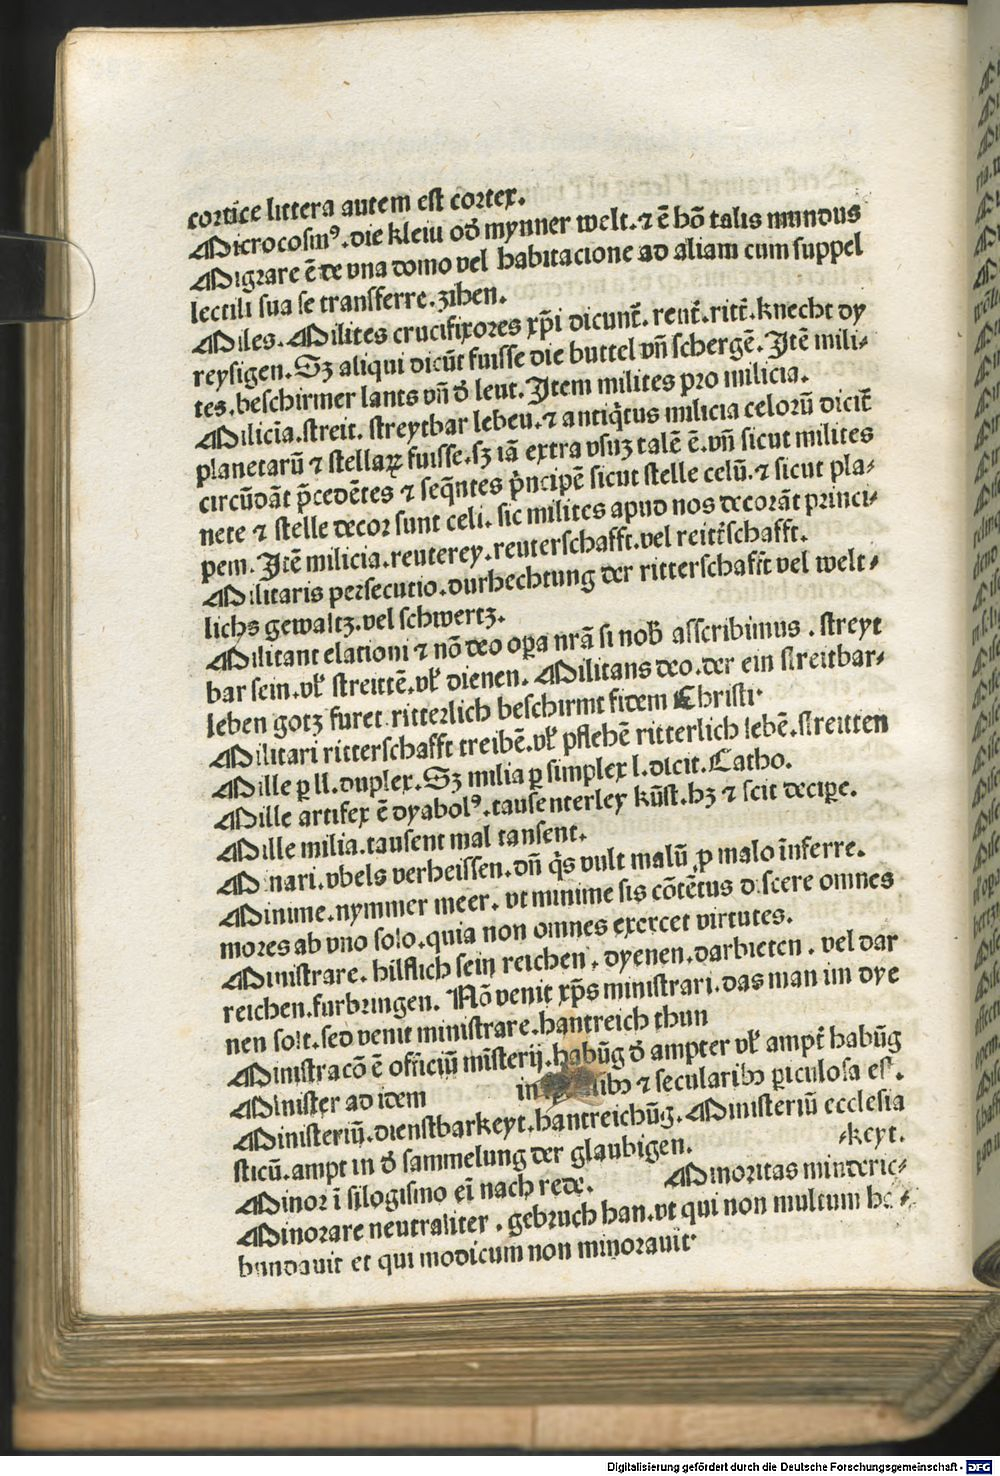 cortice littera autem est cortex.
Microcosmꝰ.die kleiu od̕ mynner welt.⁊ ē hō talis mundus
Migrare ē de vna domo vel habitacione ad aliam cum suppel
lectili sua se transferre.zihen.
Miles. Milites crucifixores xp̄i dicunt̄. reut̄.ritt̄.knecht dy
reysigen. Sz aliqui dicūt fuisse die buttel vn̄ schergē. Itē mili⸗
tes.beschirmer lants vn̄ d̕ leut. Item milites pro milicia.
Milicia.streit. streytbar lebeu.⁊ antiq̄tus milicia celorū dicit̄
planetarū ⁊ stellaꝝ fuisse.sz iā extra vsuz talē ē.vn̄ sicut milites
circūdāt p̄cedētes ⁊ seq̄ntes p̄ncipē sicut stelle celū.⁊ sicut pla⸗
nete ⁊ stelle decor sunt celi. sic milites apud nos decorāt princi⸗
pem. Itē milicia.reuterey.reuterschafft.vel reitt̄schafft.
Militaris persecutio.durhechtung der ritterschafft vel welt⸗
lichs gewaltz.vel schwertz.
Militant elationi ⁊ nō deo oꝑa nr̄a si nob̄ asscribimus . streyt
bar sein.vel̕ streittē.vel̕ dienen. Militans deo.der ein streitbar⸗
leben gotz furet ritterlich beschirmt fidem Christi
Militari ritterschafft treibē.vel̕ pflehē ritterlich lebē.streitten
Mille ꝑ ll.duplex. Sz milia ꝑ simplex l.dicit. Catho.
Mille artifex ē dyabolꝰ.tausenterley kūst.hz ⁊ scit deciꝑe.
Mille milia.tausent mal tansent.
M nari.vbels verheissen.dn̄ q̄s vult malū ꝓ malo inferre.
Minime.nymmer meer. vt minime sis cōtētus d scere omnes
mores ab vno solo.quia non omnes exercet virtutes.
Ministrare. hilflich sein reichen . dyenen.darbieten . vel dar
reichen.furbringen. Nō venit xp̄s ministrari.das man im dye
nen solt.sed venit ministrare.hantreich thun
Ministracō ē officiū mīsterij.habūg d̕ ampter vel̕ ampt̄ habūg
Minister ad idem in libꝫ ⁊ secularibꝫ ꝑiculosa est.
Ministeriū.dienstbarkeyt.hantreichūg. Ministeriū ecclesia
sticū.ampt in d̕ sammelung der glaubigen. ⸗keyt.
Minor ī silogismo eī nach rede. Minoritas minderic⸗
Minorare neutraliter . gebruch han.vt qui non multum ha ⸗
bundauit et qui modicum non minorauit
Digitalisierung gefördert durch die Deutsche Forschungsgemeinschaft - DFG